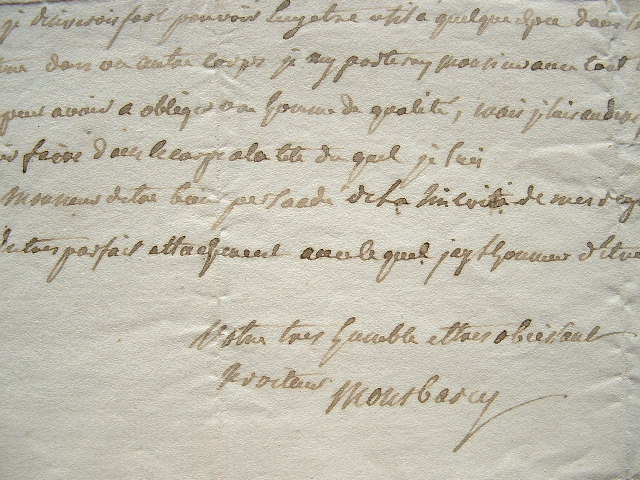 je desirerois fort pouvoir luy etre utile a quelque chose dans
dans un autre corps je my porteray monsieur avec tout
avoir a obliger un homme de qualité, mais je suis
faire dans le corps a la tete du quel je suis
Monsieur d'etre bien persuadé de la sincerité de mes
du tres parfait attachement avec le quel jay l'honneur d'etre
Votre tres humble et tres obeissant
serviteur Monsbarey